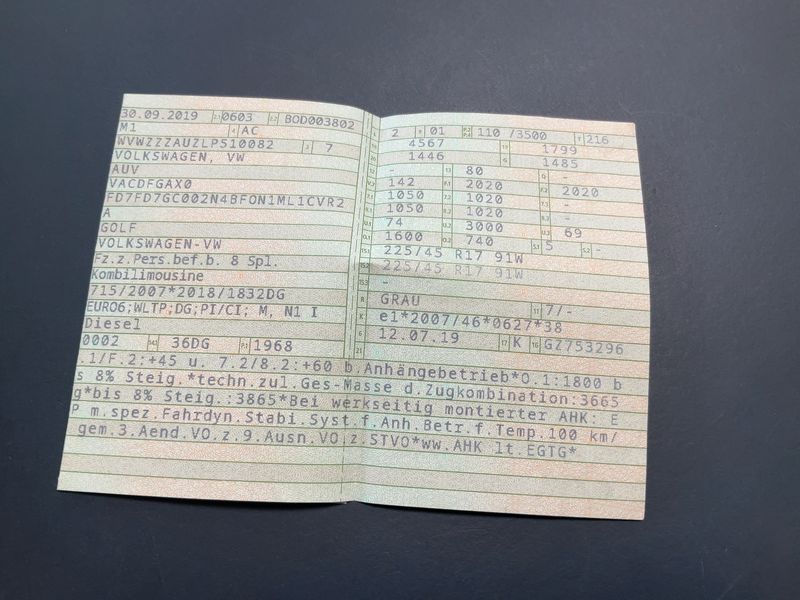 30.09.2019 2.1 0603 2.2 BOD003802
M1 4 AC
WVWZZZAUZLP510082 3 7
VOLKSWAGEN, VW
AUV
VACDFGAX0
FD7FD7GC002N4BFON1ML1CVR2
A
GOLF
VOLKSWAGEN-VW
Fz.z.Pers.bef.b. 8 Spl.
Kombilimousine
715/2007*2018/1832DG
EURO6;WLTP;DG;PI/CI; M, N1 I
Diesel
0002 14.1 36DG P.1 1968
L 2 9 01 P.2 P.4 110 /3500 T 216
18 4567 19 1799
20 1446 G 1485
12 - 13 80 Q -
V.7 142 F.1 2020 F.2 2020
7.1 1050 7.2 1020 7.3 -
8.1 1050 8.2 1020 8.3 -
U.1 74 U.2 3000 U.3 69
O.1 1600 O.2 740 S.1 5 S.2 -
15.1 225/45 R17 91W
15.2 225/45 R17 91W
15.3 -
R GRAU 11 7/-
K e1*2007/46*0627*38
6 12.07.19 17 K 16 GZ753296
21
.1/F.2:+45 u. 7.2/8.2:+60 b.Anhängebetrieb*O.1:1800 b
s 8% Steig.*techn.zul.Ges-Masse d.Zugkombination:3665
g*bis 8% Steig.:3865*Bei werkseitig montierter AHK: E
P m.spez.Fahrdyn.Stabi.Syst.f.Anh.Betr.f.Temp.100 km/
gem.3.Aend.VO.z.9.Ausn.VO.z.STVO*ww.AHK lt.EGTG*